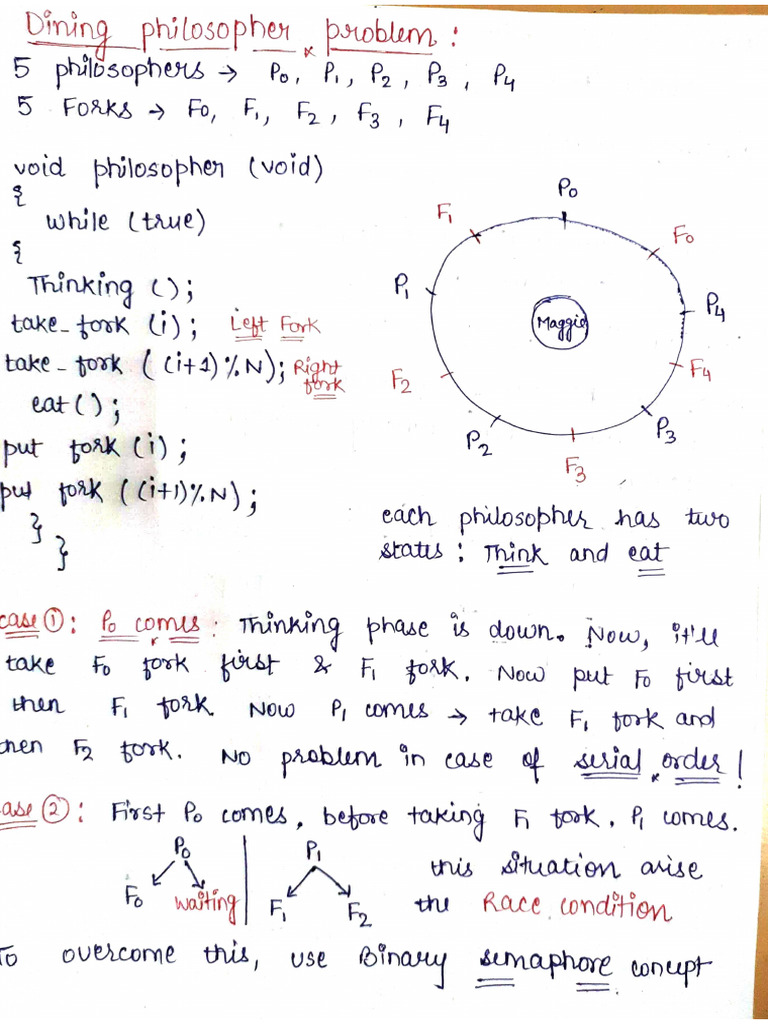 Dining philosopher problem :
5 philosophers → P0, P1, P2, P3, P4
5 Forks → F0, F1, F2, F3, F4
void philosopher (void)
{
while (true)
{
Thinking ();
take_fork (i); Left Fork
take_fork ((i+1)%N); Right fork
eat();
put fork (i);
put fork ((i+1)%N);
}
}
P0
F1
F0
P1
P4
Maggie
F2
F4
P2
P3
F3
each philosopher has two
states : Think and eat
case ①: P0 comes: Thinking phase is down. Now, it'll
take F0 fork first & F1 fork. Now put F0 first
then F1 fork. Now P1 comes → take F1 fork and
then F2 fork. No problem in case of serial order!
case ②: First P0 comes, before taking F1 fork. P1 comes.
P0
P1
this situation arise
F0 waiting F1 F2 the Race condition
To overcome this, use Binary semaphore concept